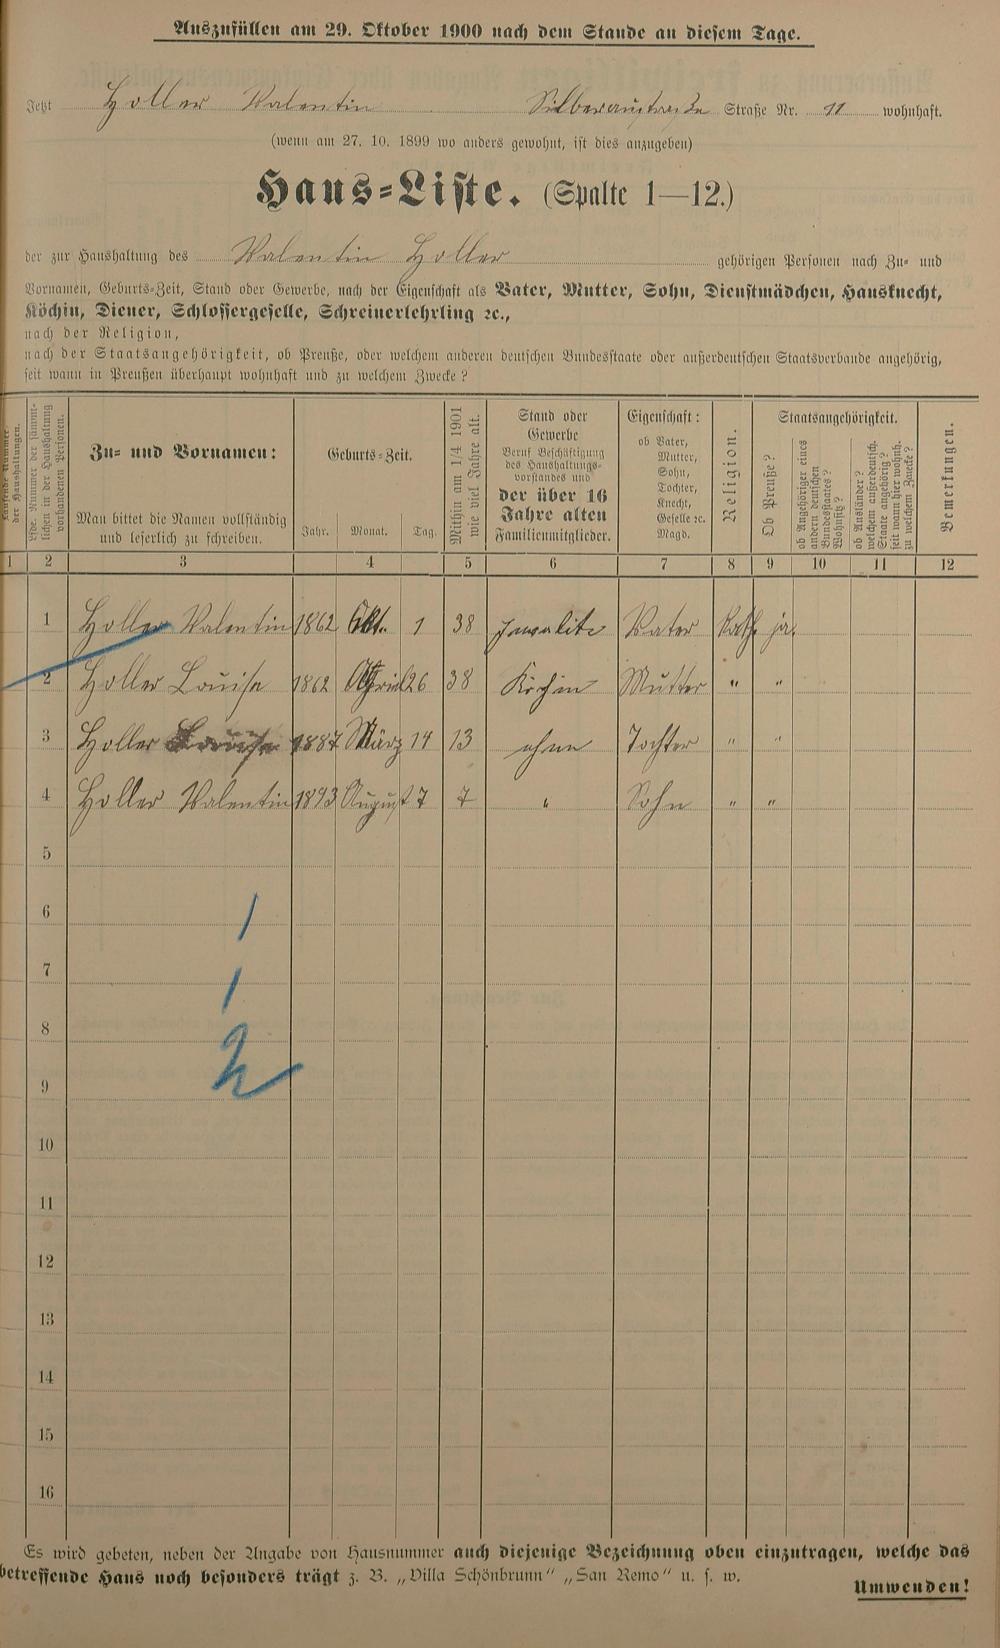 Auszufüllen am 29. Oktober 1900 nach dem Stande an diesem Tage.
Jetzt Holler Valentin Silberaustraße Straße Nr. 11 wohnhaft.
(wenn am 27. 10. 1899 wo anders gewohnt, ist dies anzugeben)
Haus-Liste. (Spalte 1—12.)
der zur Haushaltung des Valentin Holler gehörigen Personen nach Zu- und
Vornamen, Geburts-Zeit, Stand oder Gewerbe, nach der Eigenschaft als Vater, Mutter, Sohn, Dienstmädchen, Hausknecht,
Köchin, Diener, Schlossergeselle, Schreinerlehrling ꝛc.,
nach der Religion,
nach der Staatsangehörigkeit, ob Preuße, oder welchem anderen deutschen Bundesstaate oder außerdeutschen Staatsverbande angehörig,
seit wann in Preußen überhaupt wohnhaft und zu welchem Zwecke?
Laufende Nummer
der Haushaltungen.
Lfde. Nummer der sämmt-
lichen in der Haushaltung
vorhandenen Personen.
Zu- und Vornamen:
Man bittet die Namen vollständig
und leserlich zu schreiben.
Geburts-Zeit.
Jahr. Monat. Tag.
Mithin am 1/4 1901
wie viel Jahre alt.
Stand oder
Gewerbe
Beruf Beschäftigung
des Haushaltungs-
vorstandes und
der über 16
Jahre alten
Familienmitglieder.
Eigenschaft:
ob Vater,
Mutter,
Sohn,
Tochter,
Knecht,
Geselle ꝛc.
Magd.
Religion.
Staatsangehörigkeit.
Ob Preuße?
ob Angehöriger eines
andern deutschen
Bundesstaates?
Woher?
ob Ausländer?
welchem außerdeutsch.
Staate angehörig?
seit wann hier wohnh.
zu welchem Zwecke?
Bemerkungen.
1 2 3 4 5 6 7 8 9 10 11 12
1 Holler Valentin 1862 Okt. 1 38 Invalite Vater Kath. ja.
2 Holler Louise 1862 April 26 38 Köchin Mutter " "
3 Holler Louise 1887 März 14 13 ohne Tochter " "
4 Holler Valentin 1893 August 7 7 " Sohn " "
5
6 1
7 1
8
9 2
10
11
12
13
14
15
16
Es wird gebeten, neben der Angabe von Hausnummer auch diejenige Bezeichnung oben einzutragen, welche das
betreffende Haus noch besonders trägt z. B. „Villa Schönbrunn“ „San Remo“ u. s. w.
Umwenden!